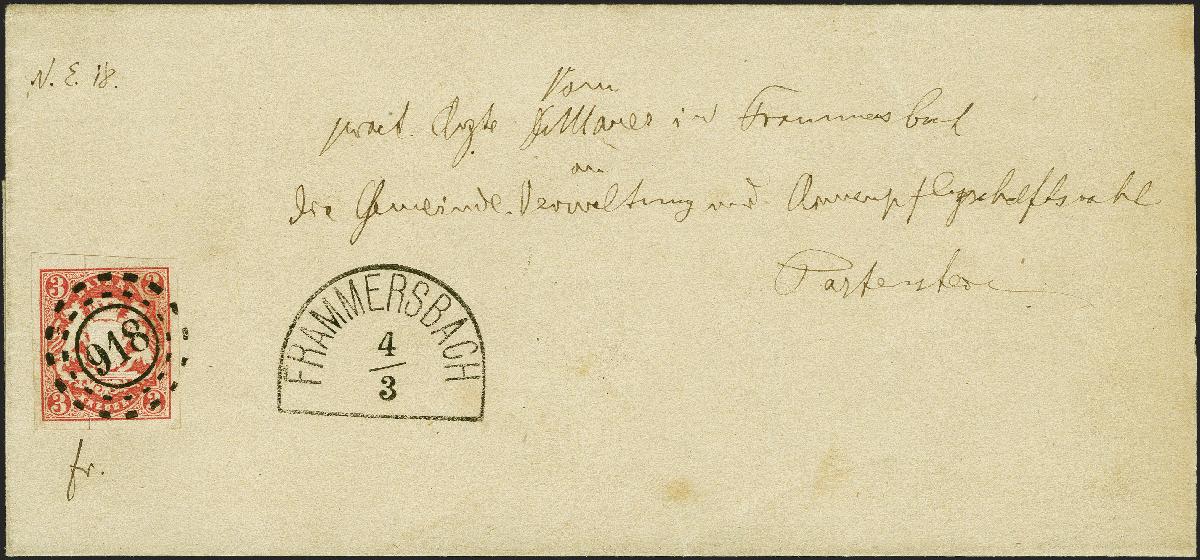 N. E. 18.
Vom
prakt. Arzte in Frammersbach
an
die Gemeinde Verwaltung und
Partenstein
3 3
918
3 3
FRAMMERSBACH
4
3
fr.